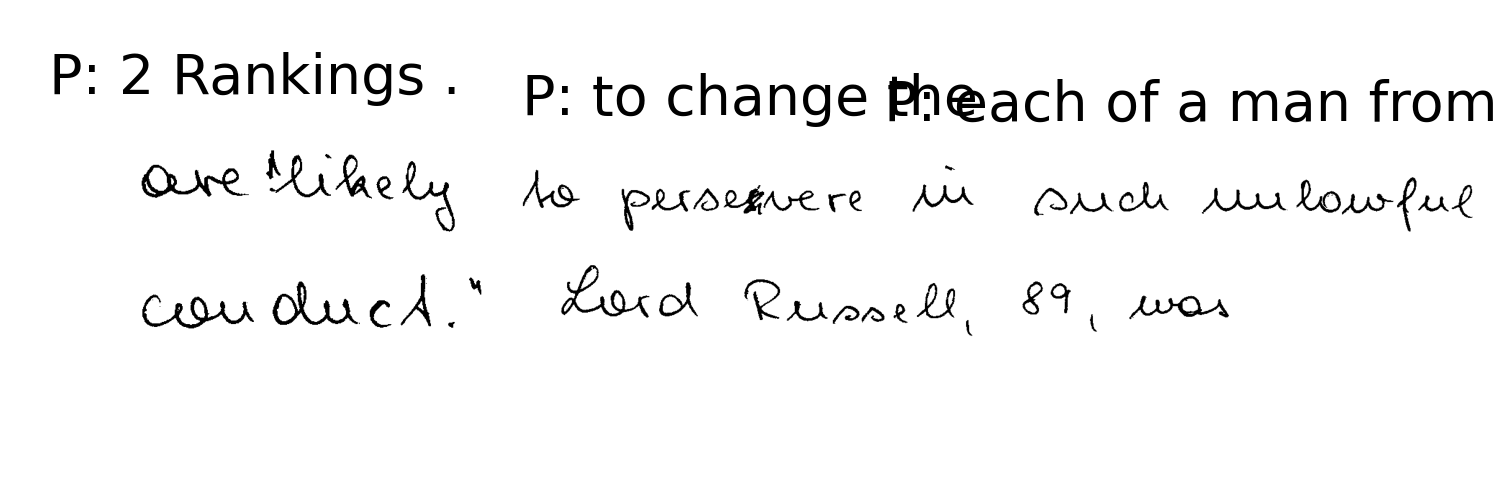 P: 2 Rankings .
P: to change the
P: each of a man from
are "likely to persevere in such unlawful
conduct." Lord Russell, 89, was